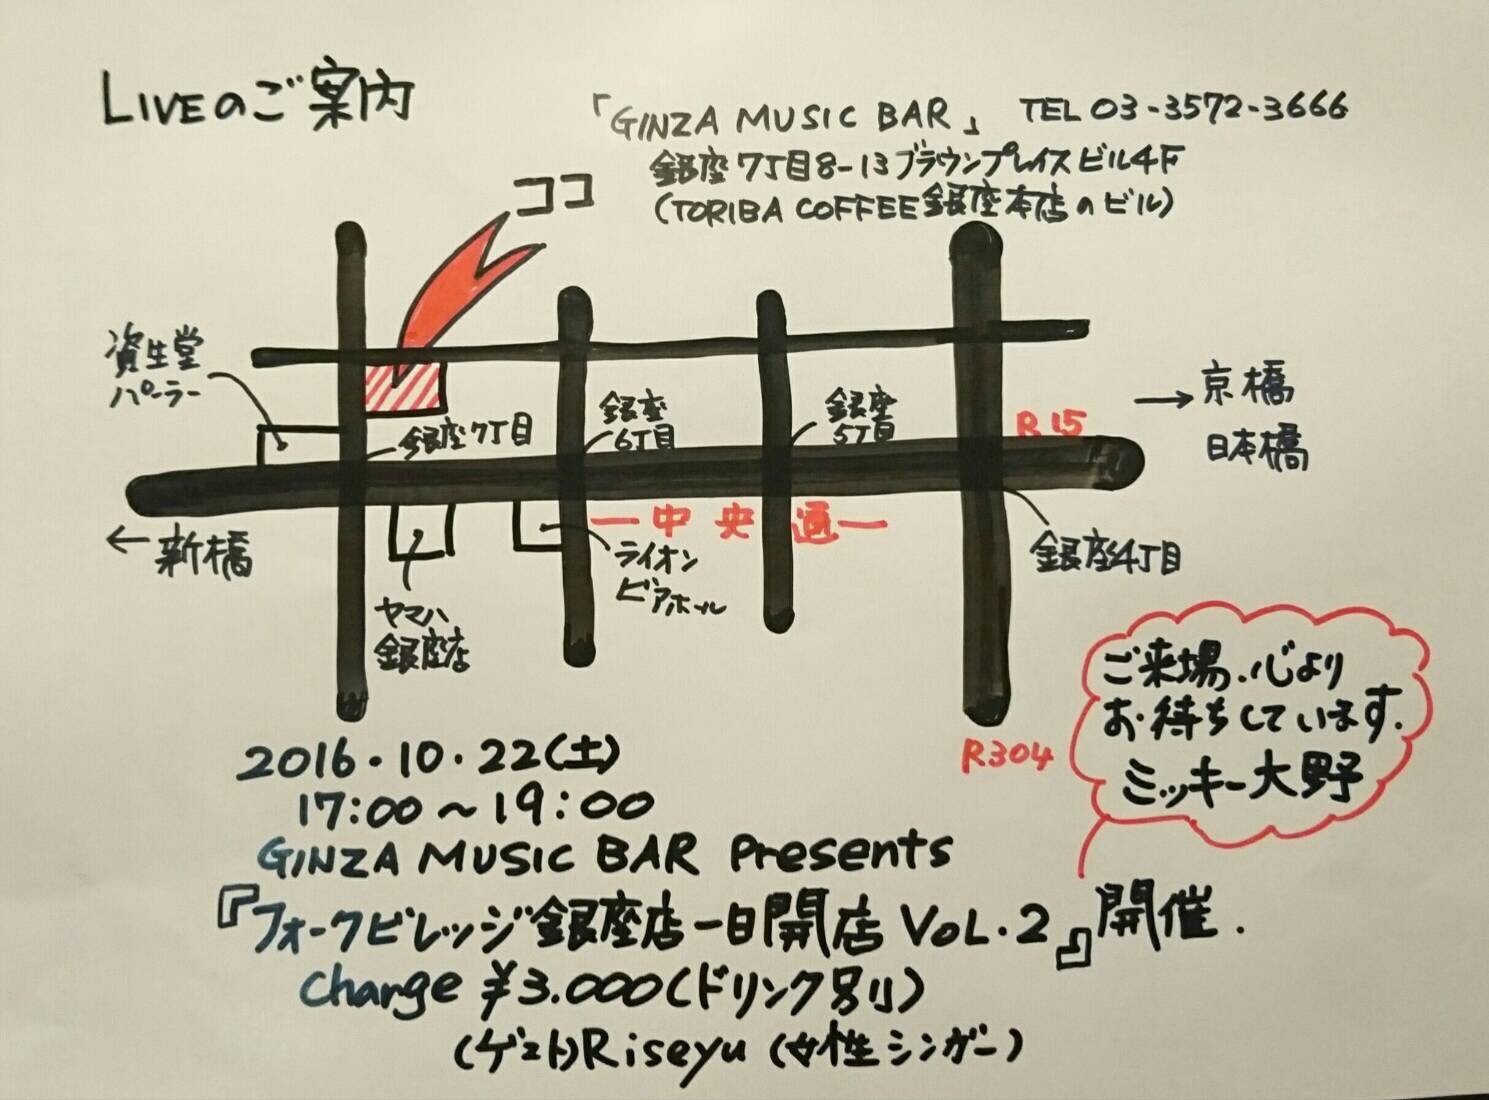 LIVEのご案内
「GINZA MUSIC BAR」 TEL 03-3572-3666
銀座7丁目8-13ブラウンプレイスビル4F
(TORIBA COFFEE銀座本店のビル)
ココ
資生堂
パーラー
銀座7丁目
銀座
6丁目
銀座
5丁目
R15
→京橋
日本橋
←新橋
ー中央通ー
銀座4丁目
ヤマハ
銀座店
ライオン
ビアホール
R304
ご来場、心より
お待ちしています.
ミッキー大野
2016・10・22(土)
17:00~19:00
GINZA MUSIC BAR Presents
『フォークビレッジ銀座店一日開店 VOL.2』開催.
Change ¥3.000(ドリンク別)
(ゲスト)Riseyu (女性シンガー)